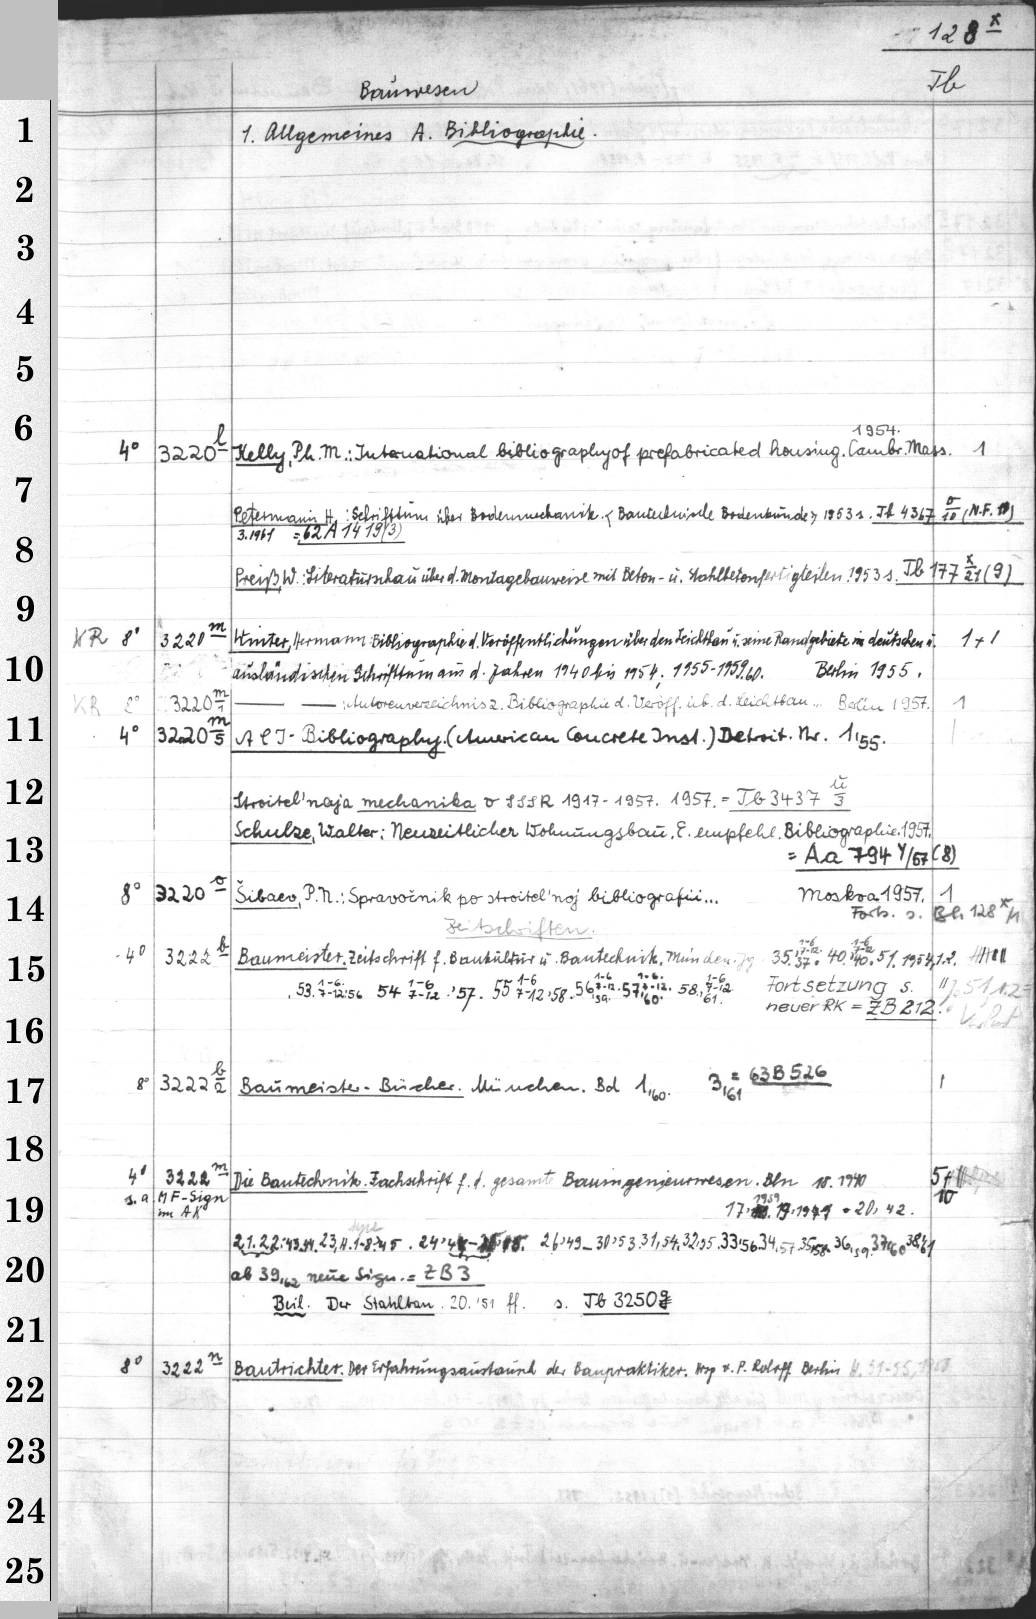 128 x
Bauwesen Tb
1 1. Allgemeines A. Bibliographie.
2
3
4
5
6
1954.
4° 3220 l Kelly, Ph. M.: International bibliography of prefabricated housing. Cambr. Mass. 1
7
Petermann H.: Schrifttum über Bodenmechanik. < Bautechnische Bodenkunde> 1953 s. Tb 4367 o/10 (N.F. )
8 3.1961 = 62 A 1419(3)
Preiß, W.: Literaturschau über d. Montagebauweise mit Beton- u. Stahlbetonfertigteilen. 1953 s. Tb 177 x/21 (9)
9
KR 8° 3220 m Winter, Hermann: Bibliographie d. Veröffentlichungen über den Leichtbau u. seine Randgebiete in deutschen u. 1+1
10 ausländischen Schrifttum aus d. Jahren 1940 bis 1954; 1955-1959,60. Berlin 1955.
KR 8° 3220 m/1 — — : Autorenverzeichnis z. Bibliographie d. Veröff. üb. d. Leichtbau... Berlin 1957. 1
11 4° 3220 m/5 ACI-Bibliography. (American Concrete Inst.) Detroit. Nr. 1,55. 1
12 Stroitel'naja mechanika v SSSR 1917-1957. 1957. = Tb 3437 ü/3
Schulze, Walter: Neuzeitlicher Wohnungsbau. E. empfehl. Bibliographie. 1957.
13 = Aa 794 y/57 (8)
8° 3220 o Šibaev, P.N.: Spravočnik po stroitel'noj bibliografii... Moskva 1957. 1
14 Forts. s. Bl. 128 x/1
Zeitschriften.
15 4° 3222 b Baumeister. Zeitschrift f. Baukultur u. Bautechnik. München. Jg 35, 37. 40, 40. 51. 1954,1.2.
53. 1-6. 7-12.'56 54 1-6 7-12.'57. 55 1-6 7-12'58. 56 1-6 7-12. 59. 57 1-6. 7-12. 60. 58. 1-6 7-12 61. Fortsetzung s. "J. 51 1.2=
16 neuer RK = ZB 212.
17 8° 3222 b/a Baumeister-Bücher. München. Bd 1,60. 3,61 = 63 B 526 1
18
4° 3222 m Die Bautechnik. Fachschrift f. d. gesamte Bauingenieurwesen. Bln 18. 1940 5+
19 s. a MF-Sign im AK 17, 1939. 19, 1941 - 20, 42. 10
21. 22, 43.44. 23, H. 1-8, 45. 24, 26, 49 - 30, 53. 31, 54. 32, 55. 33, 56. 34, 57. 35, 58. 36, 59. 37, 60 38, 61
20 ab 39,62 neue Sign. = ZB 3
Beil. Der Stahlbau. 20. '51 ff. s. Tb 3250 g
21
8° 3222 n Bautrichter. Der Erfahrungsaustausch der Baupraktiker. Hrsg v. P. Roloff Berlin H. 51-55,
22
23
24
25